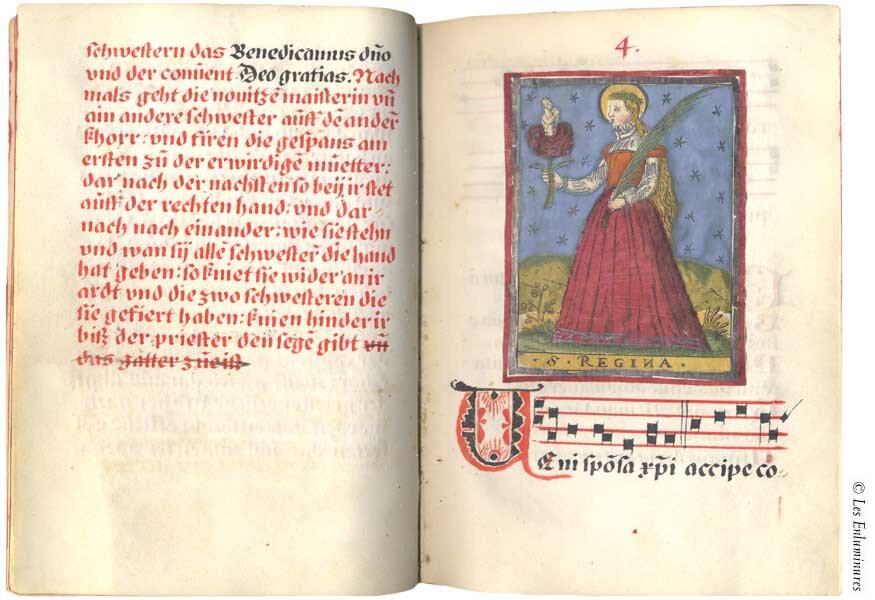 schwestern das Benedicamus dn̄o
vnd der conuent Deo gratias. Nach
mals geht die nouitzẽ maisterin vn̄
ain andere schwester auſß dẽ andeř
khorr: vnd fürẽn die gespans am
ersten zů der erwirdigẽ můetter:
dar nach der nachsten so beij ir stet
auſß der rechten hand: vnd dar-
nach nach ein ander: wie sie stehn
vnd wan sij allẽ schwesterẽ die hand
hat geben: so kniet sie wider an ir
ardt vnd die zwo schwesteren die
sie gefiert haben: knien hinder ir
biß der priester den segẽ gibt vn̄
das gatter zůeist
4.
· S · REGINA ·
VEni spõsa xp̄i accipe co-
© Les Enluminures